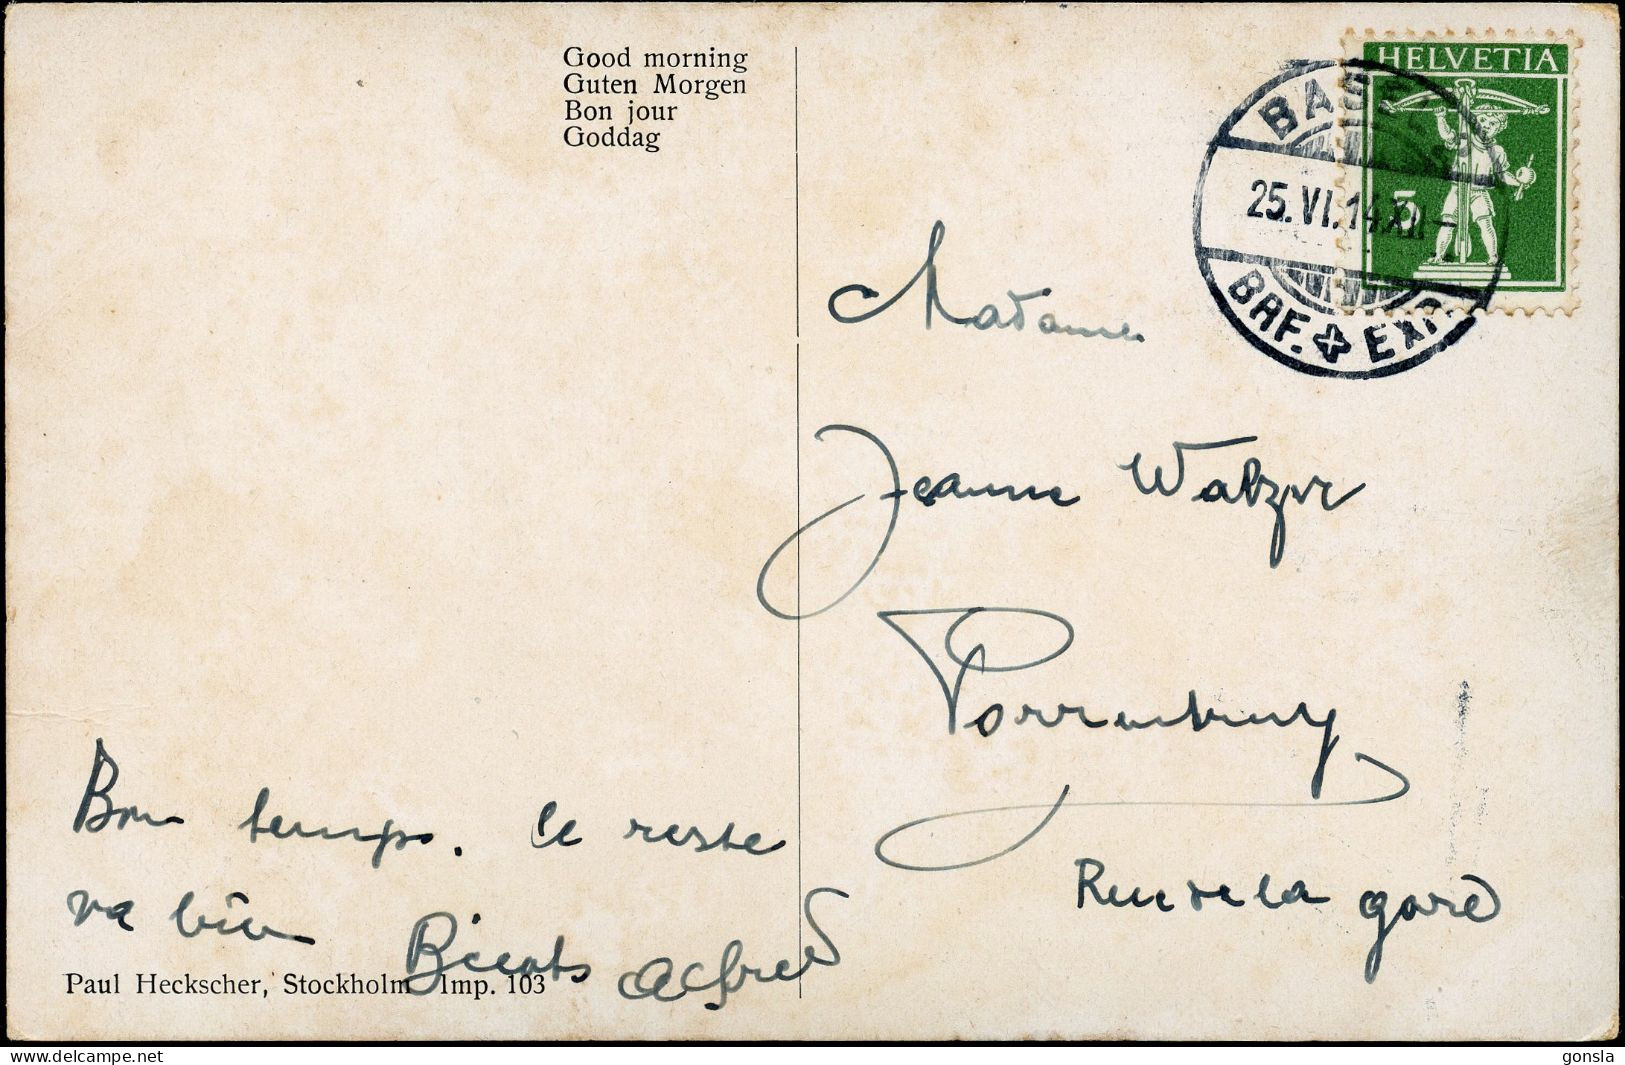 Good morning
Guten Morgen
Bon jour
Goddag
HELVETIA
5
BASEL
25.VI.14.XII-
BRF. EXP.
Madame
Jeanne Walzer
Porrentruy
Rue de la gare
Bon temps. le reste
va bien
Alfred
Paul Heckscher, Stockholm Imp. 103
delcampe.net
gonsla